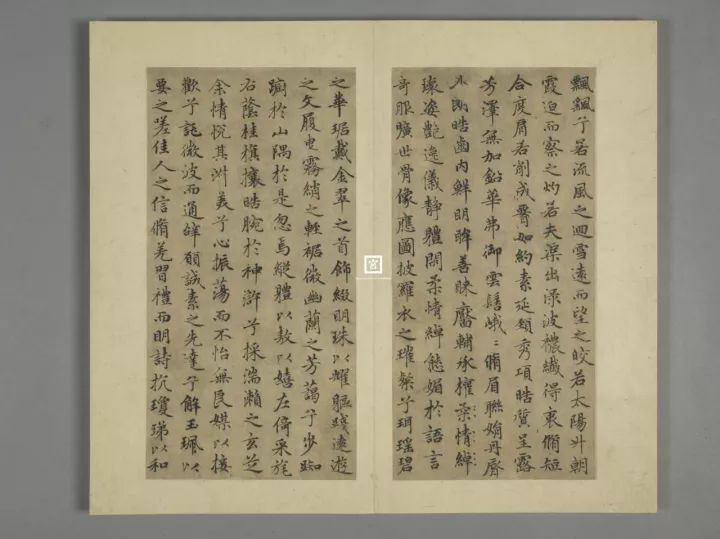 飄飄兮若流風之迴雪遠而望之皎若太陽升朝
霞迫而察之灼若夫渠出淥波襛纖得衷脩短
合度肩若削成腰如約素延頸秀項皓質呈露
芳澤無加鉛華弗御雲髻峨〻脩眉聯娟丹脣
外朗皓齒內鮮明眸善睞靨輔承權柔情綽
瓌姿艷逸儀靜體閑柔情綽態媚於語言
奇服曠世骨像應圖披羅衣之璀粲兮珥瑤碧
之華琚戴金翠之首飾綴明珠以耀軀踐遠遊
之文履曳霧綃之輕裾微幽蘭之芳藹兮步踟
躕於山隅於是忽焉縱體以敖以嬉左倚采旄
右蔭桂旗攘皓腕於神滸兮採湍瀨之玄芝
余情悅其淑美兮心振蕩而不怡無良媒以接
歡兮託微波而通辭願誠素之先達兮解玉珮以
要之嗟佳人之信脩羌習禮而明詩抗瓊珶以和
宮